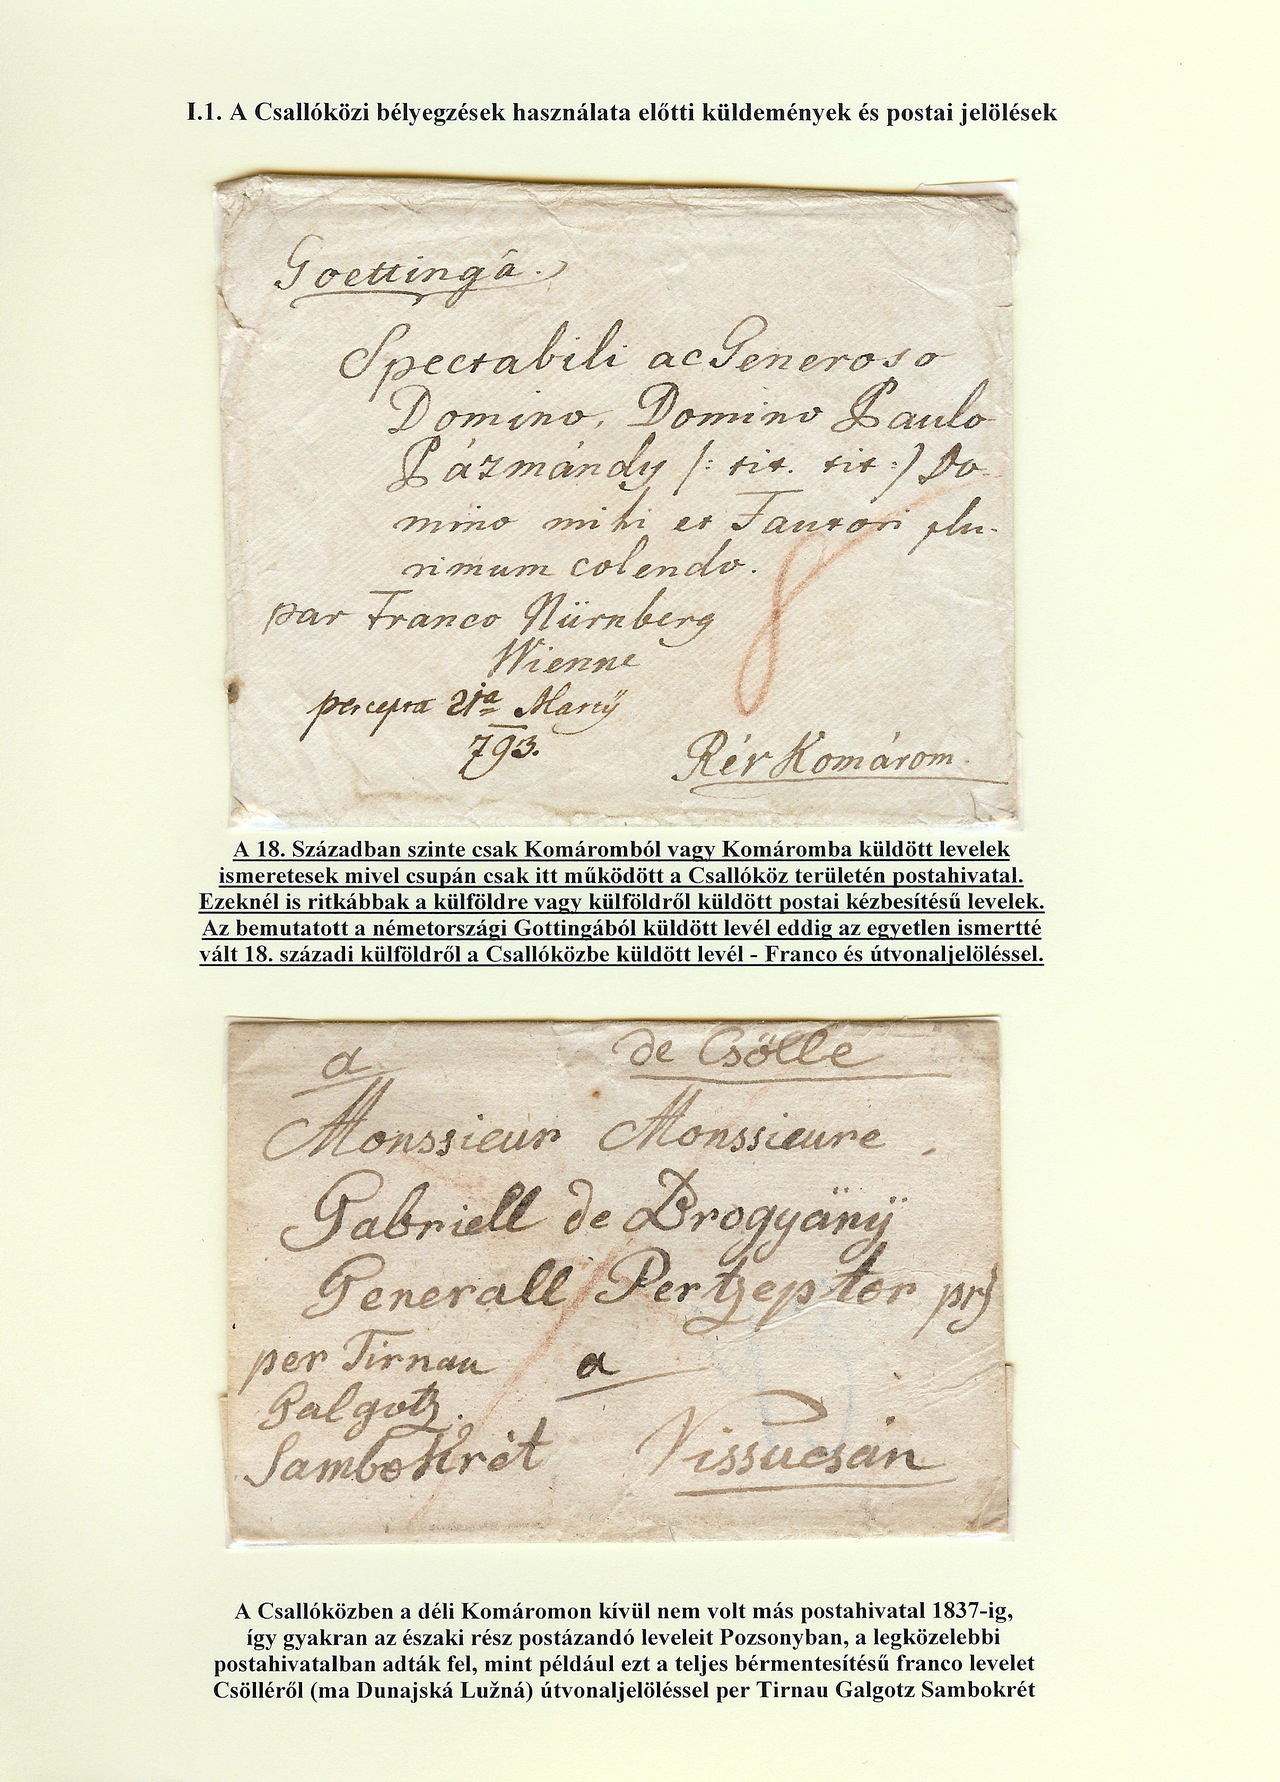 I.1. A Csallóközi bélyegzések használata előtti küldemények és postai jelölések
Goettingâ.
Spectabili ac Generoso
Domino, Domino Paulo
Pázmándy /: tit. tit :/ Do-
mino mihi et Fautori plu-
rimum colendo.
par Franco Nürnberg
Wienne
8
percepta 21a Martÿ
793.
Rév Komárom.
A 18. Században szinte csak Komáromból vagy Komáromba küldött levelek
ismeretesek mivel csupán csak itt működött a Csallóköz területén postahivatal.
Ezeknél is ritkábbak a külföldre vagy külföldről küldött postai kézbesítésű levelek.
Az bemutatott a németországi Gottingából küldött levél eddig az egyetlen ismertté
vált 18. századi külföldről a Csallóközbe küldött levél - Franco és útvonaljelöléssel.
a de Csölle
Monssieur Monssieure
Gabriell de Brogyänÿ
Generall Pertzeptor
per Tirnau a
Galgotz
Sambokrét Vissucsán
A Csallóközben a déli Komáromon kívül nem volt más postahivatal 1837-ig,
így gyakran az északi rész postázandó leveleit Pozsonyban, a legközelebbi
postahivatalban adták fel, mint például ezt a teljes bérmentesítésű franco levelet
Csölléről (ma Dunajská Lužná) útvonaljelöléssel per Tirnau Galgotz Sambokrét